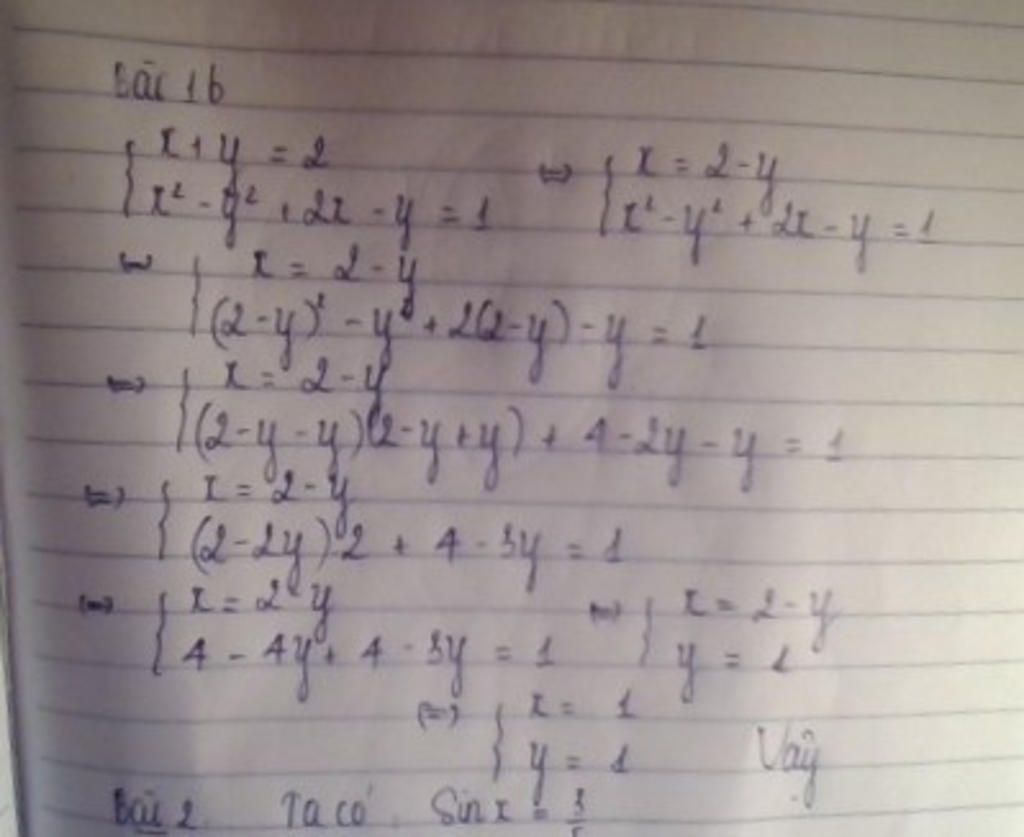 Bài 1b
{ x + y = 2 ⇔ { x = 2 - y
{ x² - y² + 2x - y = 1 { x² - y² + 2x - y = 1
⇔ { x = 2 - y
{ (2-y)² - y² + 2(2-y) - y = 1
⇔ { x = 2 - y
{ (2-y-y)(2-y+y) + 4 - 2y - y = 1
⇔ { x = 2 - y
{ (2-2y)2 + 4 - 3y = 1
⇔ { x = 2 - y ⇔ { x = 2 - y
{ 4 - 4y + 4 - 3y = 1 { y = 1
⇔ { x = 1
{ y = 1 Vậy
Bài 2 Ta có Sin x = 3